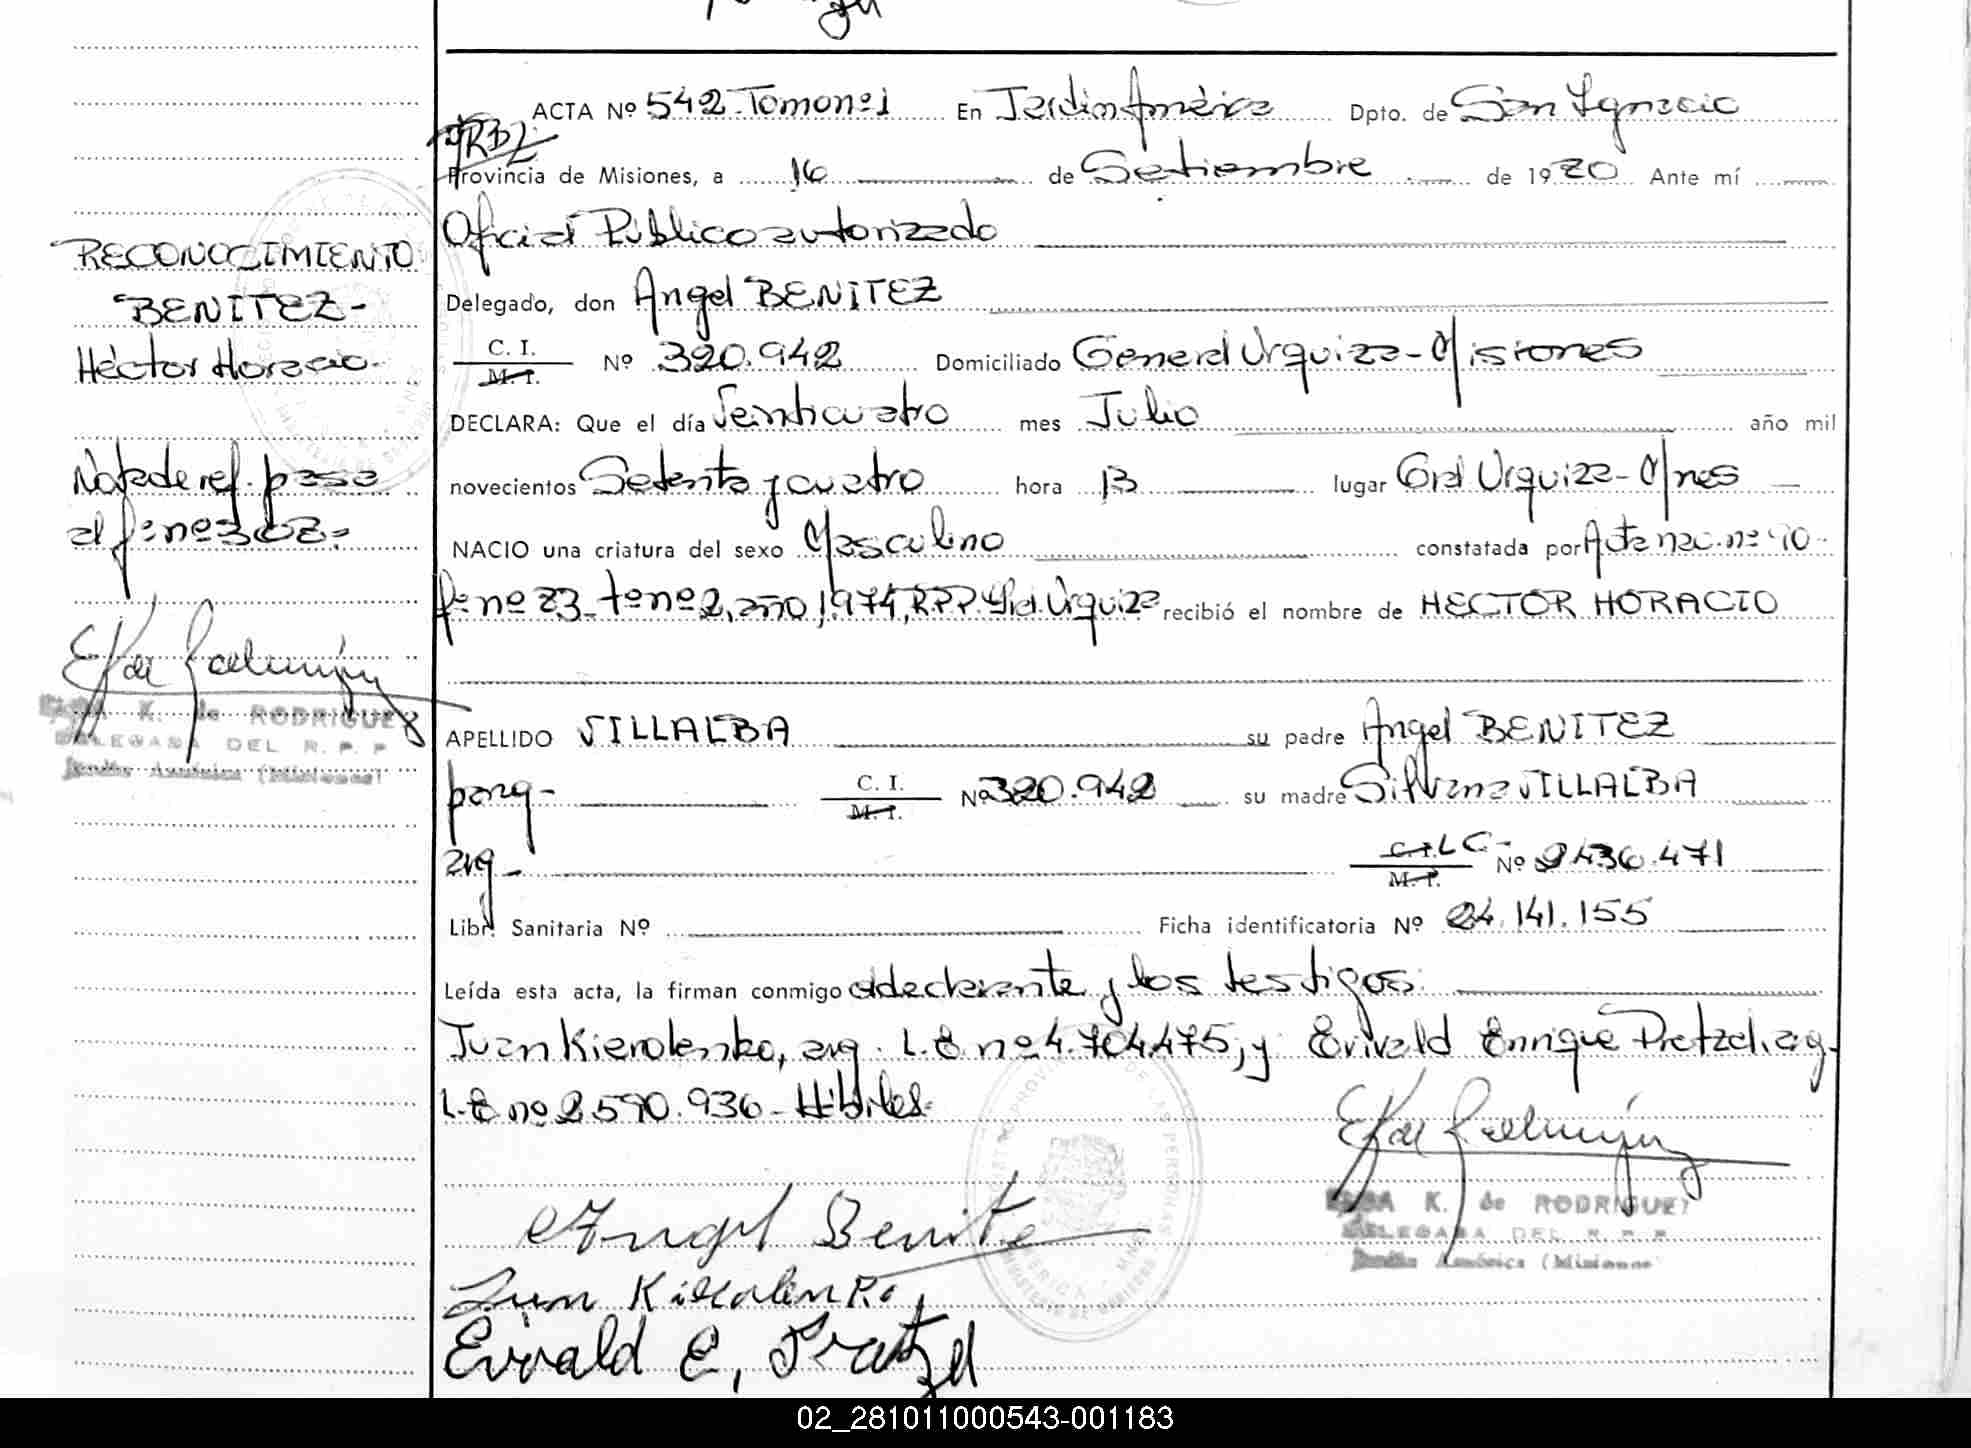 ACTA Nº 542 - Tomo nº 1 En Jardín América Dpto. de San Ignacio
Provincia de Misiones, a 16 de Setiembre de 1980 Ante mí
Oficial Público autorizado
Delegado, don Angel BENITEZ
C. I. M. I. Nº 320.942 Domiciliado General Urquiza - Misiones
DECLARA: Que el día Veinticuatro mes Julio año mil
novecientos Setenta y cuatro hora 13 lugar Gral Urquiza - Mnes
NACIO una criatura del sexo Masculino constatada por Acta nac. nº 90 -
fº nº 23 - tº nº 2, año 1974, R.P.P. Gral. Urquiza recibió el nombre de HECTOR HORACIO
APELLIDO VILLALBA su padre Angel BENITEZ
parag - C. I. M. I. Nº 320.942 su madre Silvana VILLALBA
arg - C. I. L C - M. I. Nº 2436.471
Libr. Sanitaria Nº Ficha identificatoria Nº 24.141.155
Leída esta acta, la firman conmigo el declarante y los testigos:
Juan Kierolenko, arg. L.E. nº 4.704.475, y Erivald Enrique Pretzel, arg.
L.E nº 2590.936 - Hábiles -
Angel Benite
Juan
E. Pretzel
K. de RODRIGUEZ
DELEGADA DEL R. P. P.
Jardín América (Misiones)
RECONOCIMIENTO
BENITEZ -
Héctor Horacio -
Nota de ref. pasa
al fº nº 302 -
K. de RODRIGUEZ
DELEGADA DEL R. P. P
Jardín América (Misiones)
02_281011000543-001183